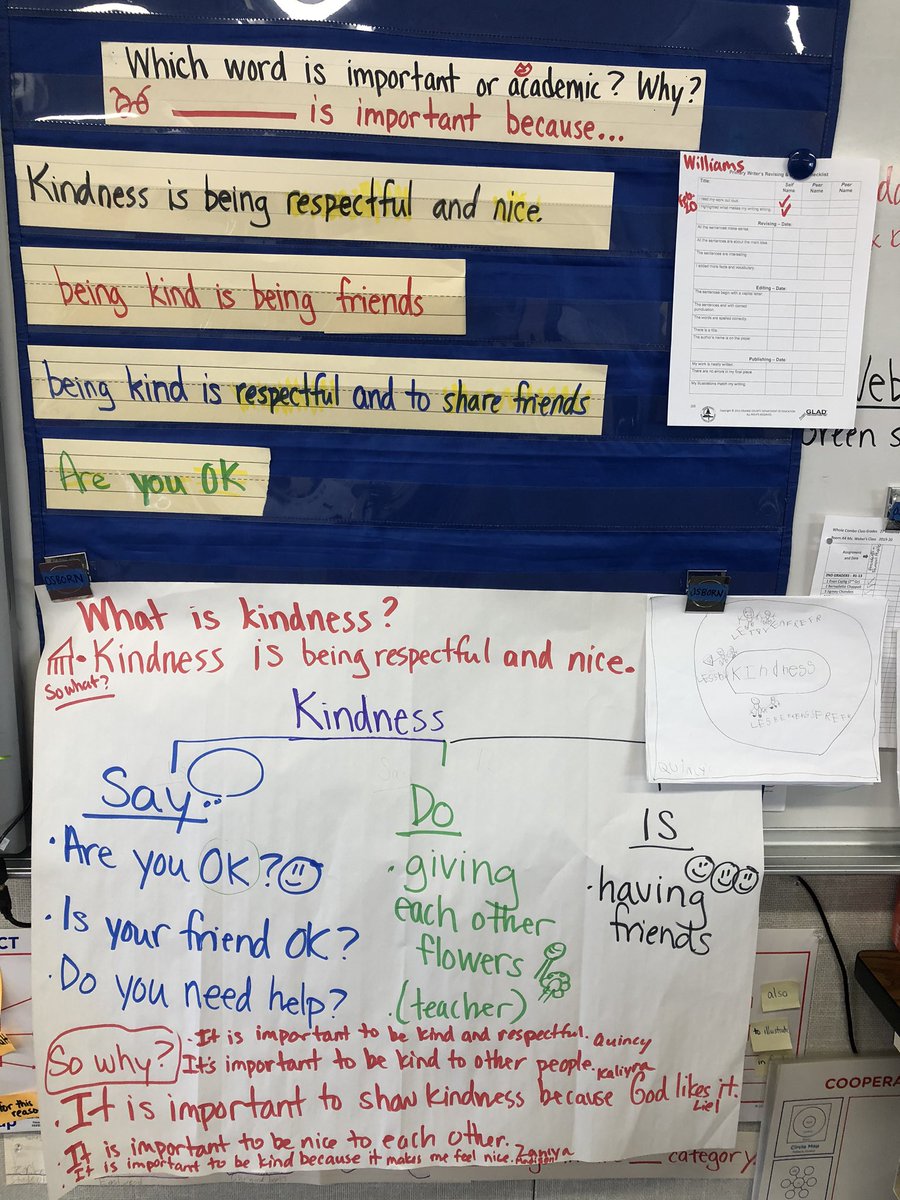 Which word is important or academic? Why?
is important because...
Kindness is being respectful and nice.
being kind is being friends
being kind is respectful and to share friends
Are you OK
Williams
Primary Writer's Revising & Checklist
Title:
Self Name
Peer Name
Peer Name
I read my work out loud.
I highlighted what makes my writing strong
Revising - Date:
All the sentences make sense.
All the sentences are about the main idea.
The sentences are interesting.
I added more facts and vocabulary.
Editing - Date:
The sentences begin with a capital letter.
The sentences end with correct punctuation.
The words are spelled correctly.
There is a title.
The author's name is on the paper
Publishing - Date
My work is neatly written.
There are no errors in my final piece.
My illustrations match my writing.
GLAD
Web
Green s
Assignment and Date
OSBORN
OSBORN
What is kindness?
Kindness is being respectful and nice.
So what?
Kindness
Kindness
Quincy
Say
· Are you OK?
· Is your friend OK?
· Do you need help?
Do
· giving each other flowers
(teacher)
IS
· having friends
So why?
· It is important to be kind and respectful. Quincy
It's important to be kind to other people. Kaliyra
· It is important to show kindness because God likes it. Liel
· It is important to be nice to each other. Zaniya
· It is important to be kind because it makes me feel nice. Madison
category
CT
for this reason
up
also
to illustrate
in
COOPERA
Circle Map